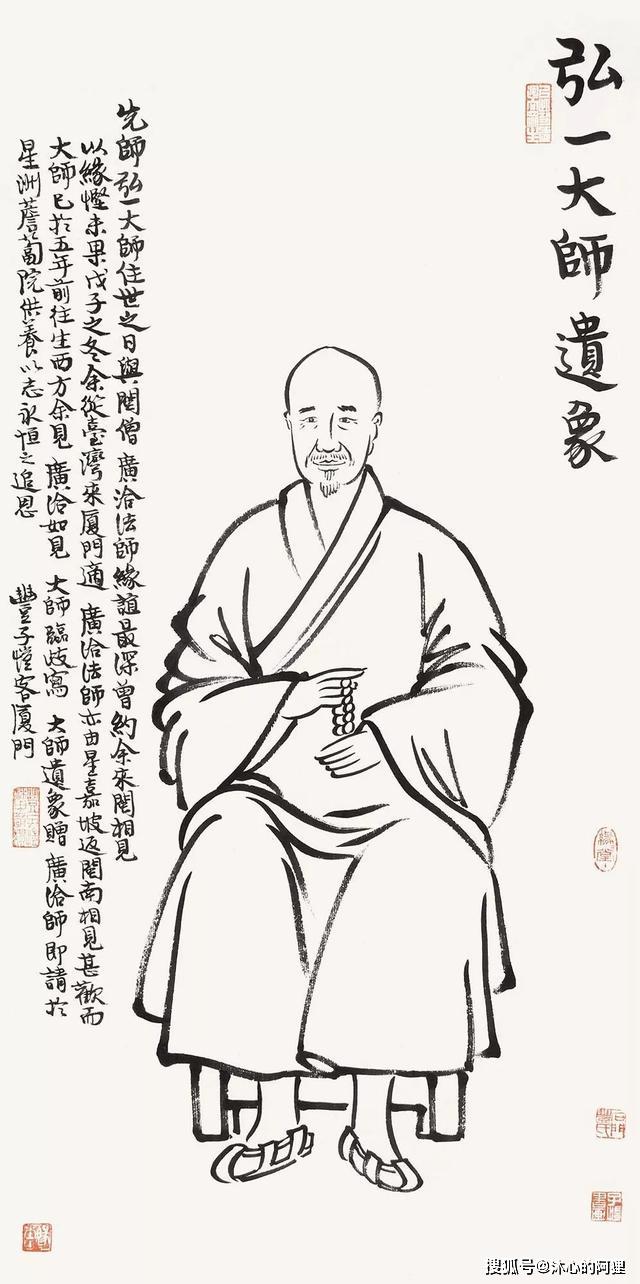 弘一大師遺象
先師弘一大師住世之日與閩僧廣洽法師緣誼最深曾約余來閩相見
以緣慳未果戊子之冬余從臺灣來厦門適廣洽法師亦由星嘉坡返閩南相見甚歡而
大師已於五年前往生西方余見廣洽如見大師臨歧寫大師遺象贈廣洽師即請於
星洲薝蔔院供養以志永恒之追思
豐子愷客厦門
緣堂
石門豐氏
搜狐号@沐心的阿狸